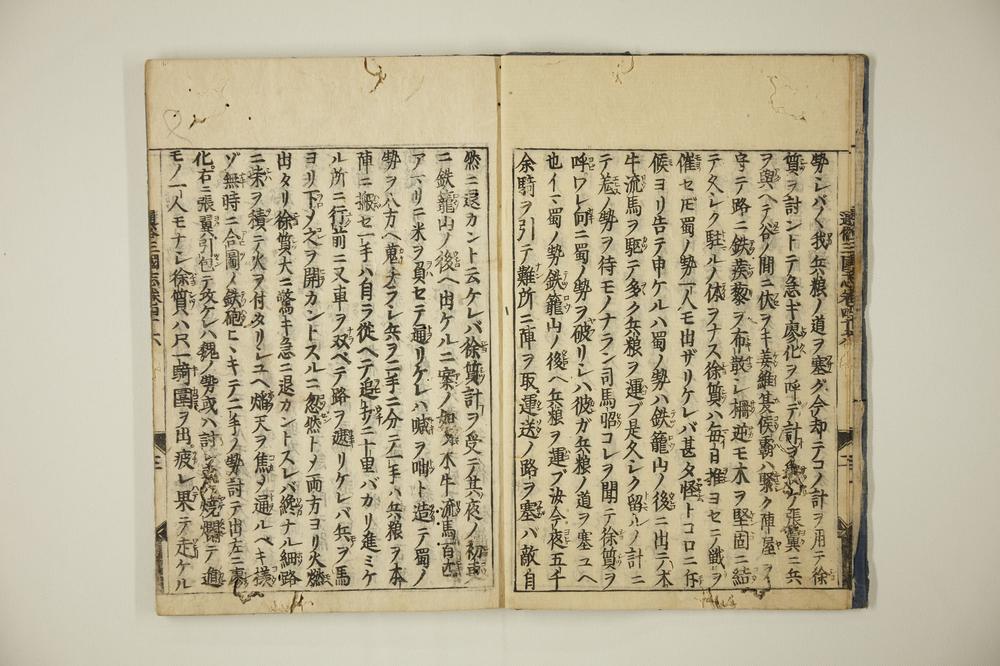 勢シバ〱我兵粮ノ道ヲ塞グ今却テコノ計ヲ用テ徐
質ヲ討ントテ急ギ廖化ヲ呼デ計ヲ 張翼ニ兵
ヲ與ヘテ谷ノ間ニ伏ヲキ姜維夏侯覇ハ緊ク陣屋ヲ
守テ路ニ鉄蒺藜ヲ布散シ柵逆モ木ヲ堅固ニ結
テ久シク駐ルノ体ヲナス徐質ハ毎日推ヨセテ戦ヲ
催セ𪜈蜀ノ勢一人モ出ザリケレバ甚タ怪トコロニ斥
候ヨリ告テ申ケルハ蜀ノ勢ハ鉄籠山ノ後ニ出テ木
牛流馬ヲ駆テ多ク兵粮ヲ運ブ是久シク留ルノ計ニ
テ羌ノ勢ヲ待モノナラン司馬昭コレヲ聞テ徐質ヲ
呼ワレ向ニ蜀ノ勢ヲ破リシハ彼ガ兵粮ノ道ヲ塞ユヘ
也イマ蜀ノ勢鉄籠山ノ後ヘ兵粮ヲ運ブ汝今夜五千
余騎ヲ引テ難所ニ陣ヲ取運送ノ路ヲ塞バ敵自
然ニ退カント云ケレバ徐質計ヲ受テ其夜ノ初更
ニ鉄籠山ノ後ヘ出ケルニ案ノ如ク木牛流馬百匹
アマリニ米ヲ負セテ通リケレハ喊ヲ咄ト造テ蜀ノ
勢ヲ八方ヘ蒐チラシ兵ヲ二手ニ分テ一手ハ兵粮ヲ本
陣ニ搬セ一手ハ自ラ從ヘテ追カ十里バカリ進ミケ
ル所ニ行前ニ又車ヲ双ベテ路ヲ遮リケレバ兵ヲ馬
ヨリ下メ又ヲ開カントスルニ忽然トメ両方ヨリ火燃
出タリ徐質大ニ驚キ急ニ退カントスレバ纔ナル細路
ニ柴ヲ積テ火ヲ付タリシユヘ焔天ヲ焦メ通ルベキ様
ゾ無時ニ合圖ノ鉄砲ヒヾキテ二手ノ勢討テ出左ニ廖
化右ニ張翼引包テ攻ケレハ魏ノ勢或ハ討レ或ハ焼爛テ進
モノ一人モナシ徐質ハ只一騎圍ヲ出疲レ果テ走ケル
通俗三國志巻四十六